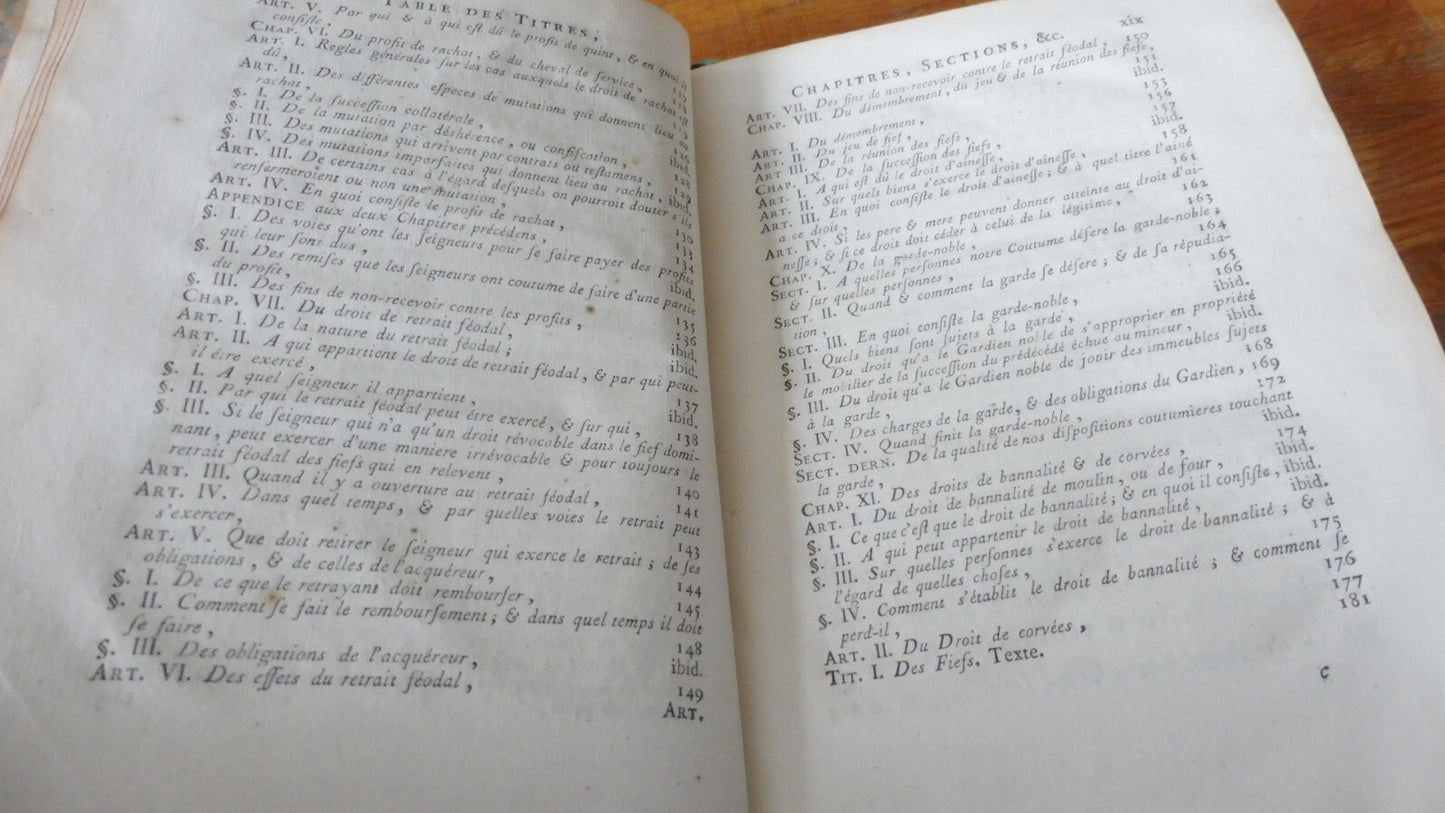 TABLE DES TITRES,
ART. V. Par qui & à qui est dû le profit de quint, & en quoi il
consiste,
CHAP. VI. Du profit de rachat, & du cheval de service,
ART. I. Regles générales sur les cas auxquels le droit de rachat est
dû,
ART. II. Des différentes especes de mutations qui donnent lieu au
rachat,
§. I. De la succession collatérale, 126
§. II. De la mutation par déshérence, ou confiscation, ibid.
§. III. Des mutations qui arrivent par contrats ou testamens, 128
§. IV. Des mutations imparfaites qui donnent lieu au rachat, 129
ART. III. De certains cas à l'égard desquels on pourroit douter s'ils
renfermeroient ou non une mutation, ibid.
ART. IV. En quoi consiste le profit de rachat, 130
APPENDICE aux deux Chapitres précédens, 133
§. I. Des voies qu'ont les seigneurs pour se faire payer des profits
qui leur sont dus, 134
§. II. Des remises que les seigneurs ont coutume de faire d'une partie
du profit, ibid.
§. III. Des fins de non-recevoir contre les profits, 135
CHAP. VII. Du droit de retrait féodal, 136
ART. I. De la nature du retrait féodal; ibid.
ART. II. A qui appartient le droit de retrait féodal, & par qui peut-
il être exercé, ibid.
§. I. A quel seigneur il appartient, 137
§. II. Par qui le retrait féodal peut être exercé, & sur qui, ibid.
§. III. Si le seigneur qui n'a qu'un droit révocable dans le fief domi-
nant, peut exercer d'une maniere irrévocable & pour toujours le
retrait féodal des fiefs qui en relevent, 138
ART. III. Quand il y a ouverture au retrait féodal, 140
ART. IV. Dans quel temps, & par quelles voies le retrait peut
s'exercer, 141
ART. V. Que doit retirer le seigneur qui exerce le retrait; de ses
obligations, & de celles de l'acquéreur, 143
§. I. De ce que le retrayant doit rembourser, 144
§. II. Comment se fait le remboursement; & dans quel temps il doit
se faire, 145
§. III. Des obligations de l'acquéreur, 148
ibid.
ART. VI. Des effets du retrait féodal, 149
ART.
CHAPITRES, SECTIONS, &c. xix
ART. VII. Des fins de non-recevoir contre le retrait féodal, 150
CHAP. VIII. Du démembrement, du jeu & de la réunion des fiefs,
151
ART. I. Du démembrement, ibid.
ART. II. Du jeu de fief, 153
ART III. De la réunion des fiefs, 156
CHAP. IX. De la succession des fiefs, 157
ART. I. A qui est dû le droit d'aînesse, ibid.
ART. II. Sur quels biens s'exerce le droit d'ainesse, 158
ART. III. En quoi consiste le droit d'ainesse; & à quel titre l'ainé
a ce droit, 161
ART. IV. Si les pere & mere peuvent donner atteinte au droit d'ai-
nesse; & si ce droit doit céder à celui de la légitime, 162
CHAP. X. De la garde-noble, 163
SECT. I. A quelles personnes notre Coutume défere la garde-noble;
& sur quelles personnes, 164
SECT. II. Quand & comment la garde se défere; & de sa répudia-
tion, 165
SECT. III. En quoi consiste la garde-noble, 166
§. I. Quels biens sont sujets à la garde, ibid.
§. II. Du droit qu'a le Gardien noble de s'approprier en propriété
le mobilier de la succession du prédécédé échue au mineur, ibid.
§. III. Du droit qu'a le Gardien noble de jouir des immeubles sujets
à la garde, 168
§. IV. Des charges de la garde, & des obligations du Gardien, 169
SECT. IV. Quand finit la garde-noble, 172
SECT. DERN. De la qualité de nos dispositions coutumieres touchant
la garde, ibid.
CHAP. XI. Des droits de bannalité & de corvées, 174
ART. I. Du droit de bannalité de moulin, ou de four, ibid.
§. I. Ce que c'est que le droit de bannalité; & en quoi il consiste, ibid.
§. II. A qui peut appartenir le droit de bannalité, ibid.
§. III. Sur quelles personnes s'exerce le droit de bannalité; & à
l'égard de quelles choses, 175
§. IV. Comment s'établit le droit de bannalité; & comment se
perd-il, 176
ART. II. Du Droit de corvées, 177
TIT. I. Des Fiefs. Texte. 181
c